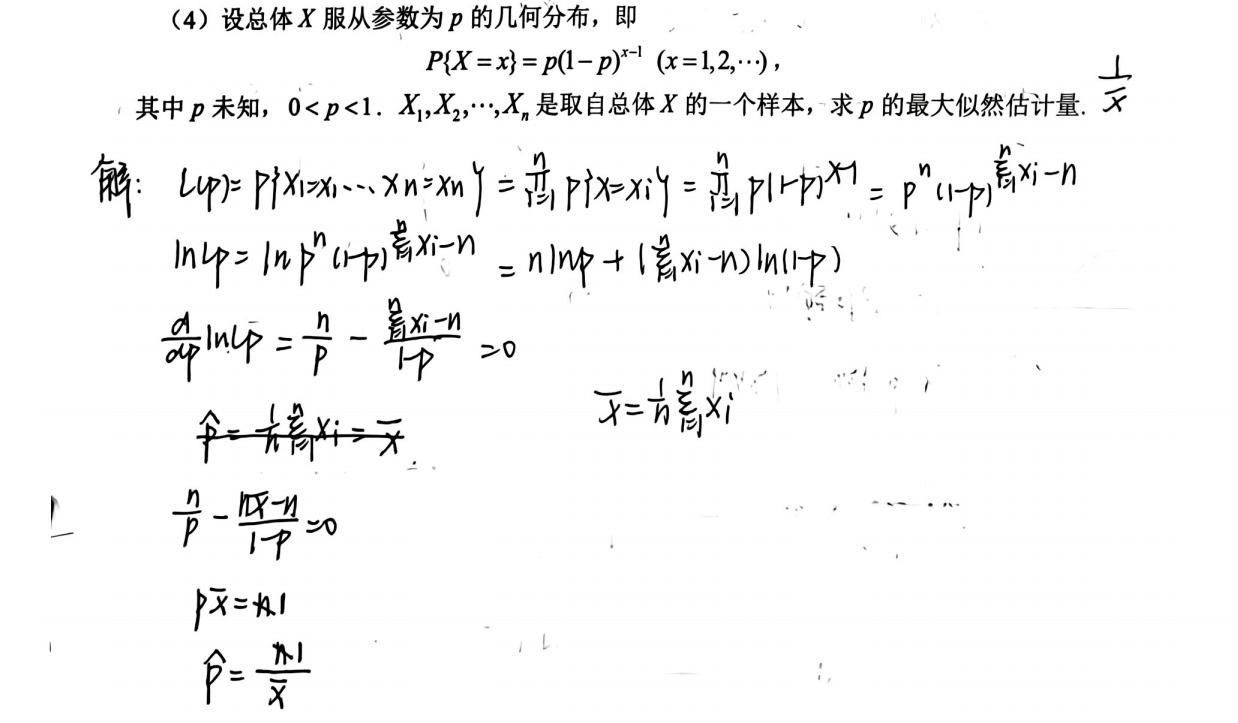 （4）设总体 X 服从参数为 p 的几何分布，即
P{X = x} = p(1− p)^{x−1} (x = 1,2,⋯)，
其中 p 未知，0 < p < 1. X₁,X₂,⋯,Xₙ 是取自总体 X 的一个样本，求 p 的最大似然估计量. 1/x̄
解: L(p)= P{X₁=x₁ ⋯ Xn=xn} = ∏_{i=1}^{n} P{X=xi} = ∏_{i=1}^{n} p(1-p)^{x-1} = p^n (1-p)^{∑_{i=1}^{n} xi-n}
lnLp = ln p^n (1-p)^{∑_{i=1}^{n} xi-n} = nlnp + (∑_{i=1}^{n} xi-n) ln(1-p)
d/dp lnLp = n/p - (∑_{i=1}^{n} xi-n)/(1-p) =0
x̄ = 1/n ∑_{i=1}^{n} xi
p̂ = 1/n ∑_{i=1}^{n} xi = x̄
n/p - (nx̄-n)/(1-p) =0
px̄ = 1
p̂ = 1/x̄